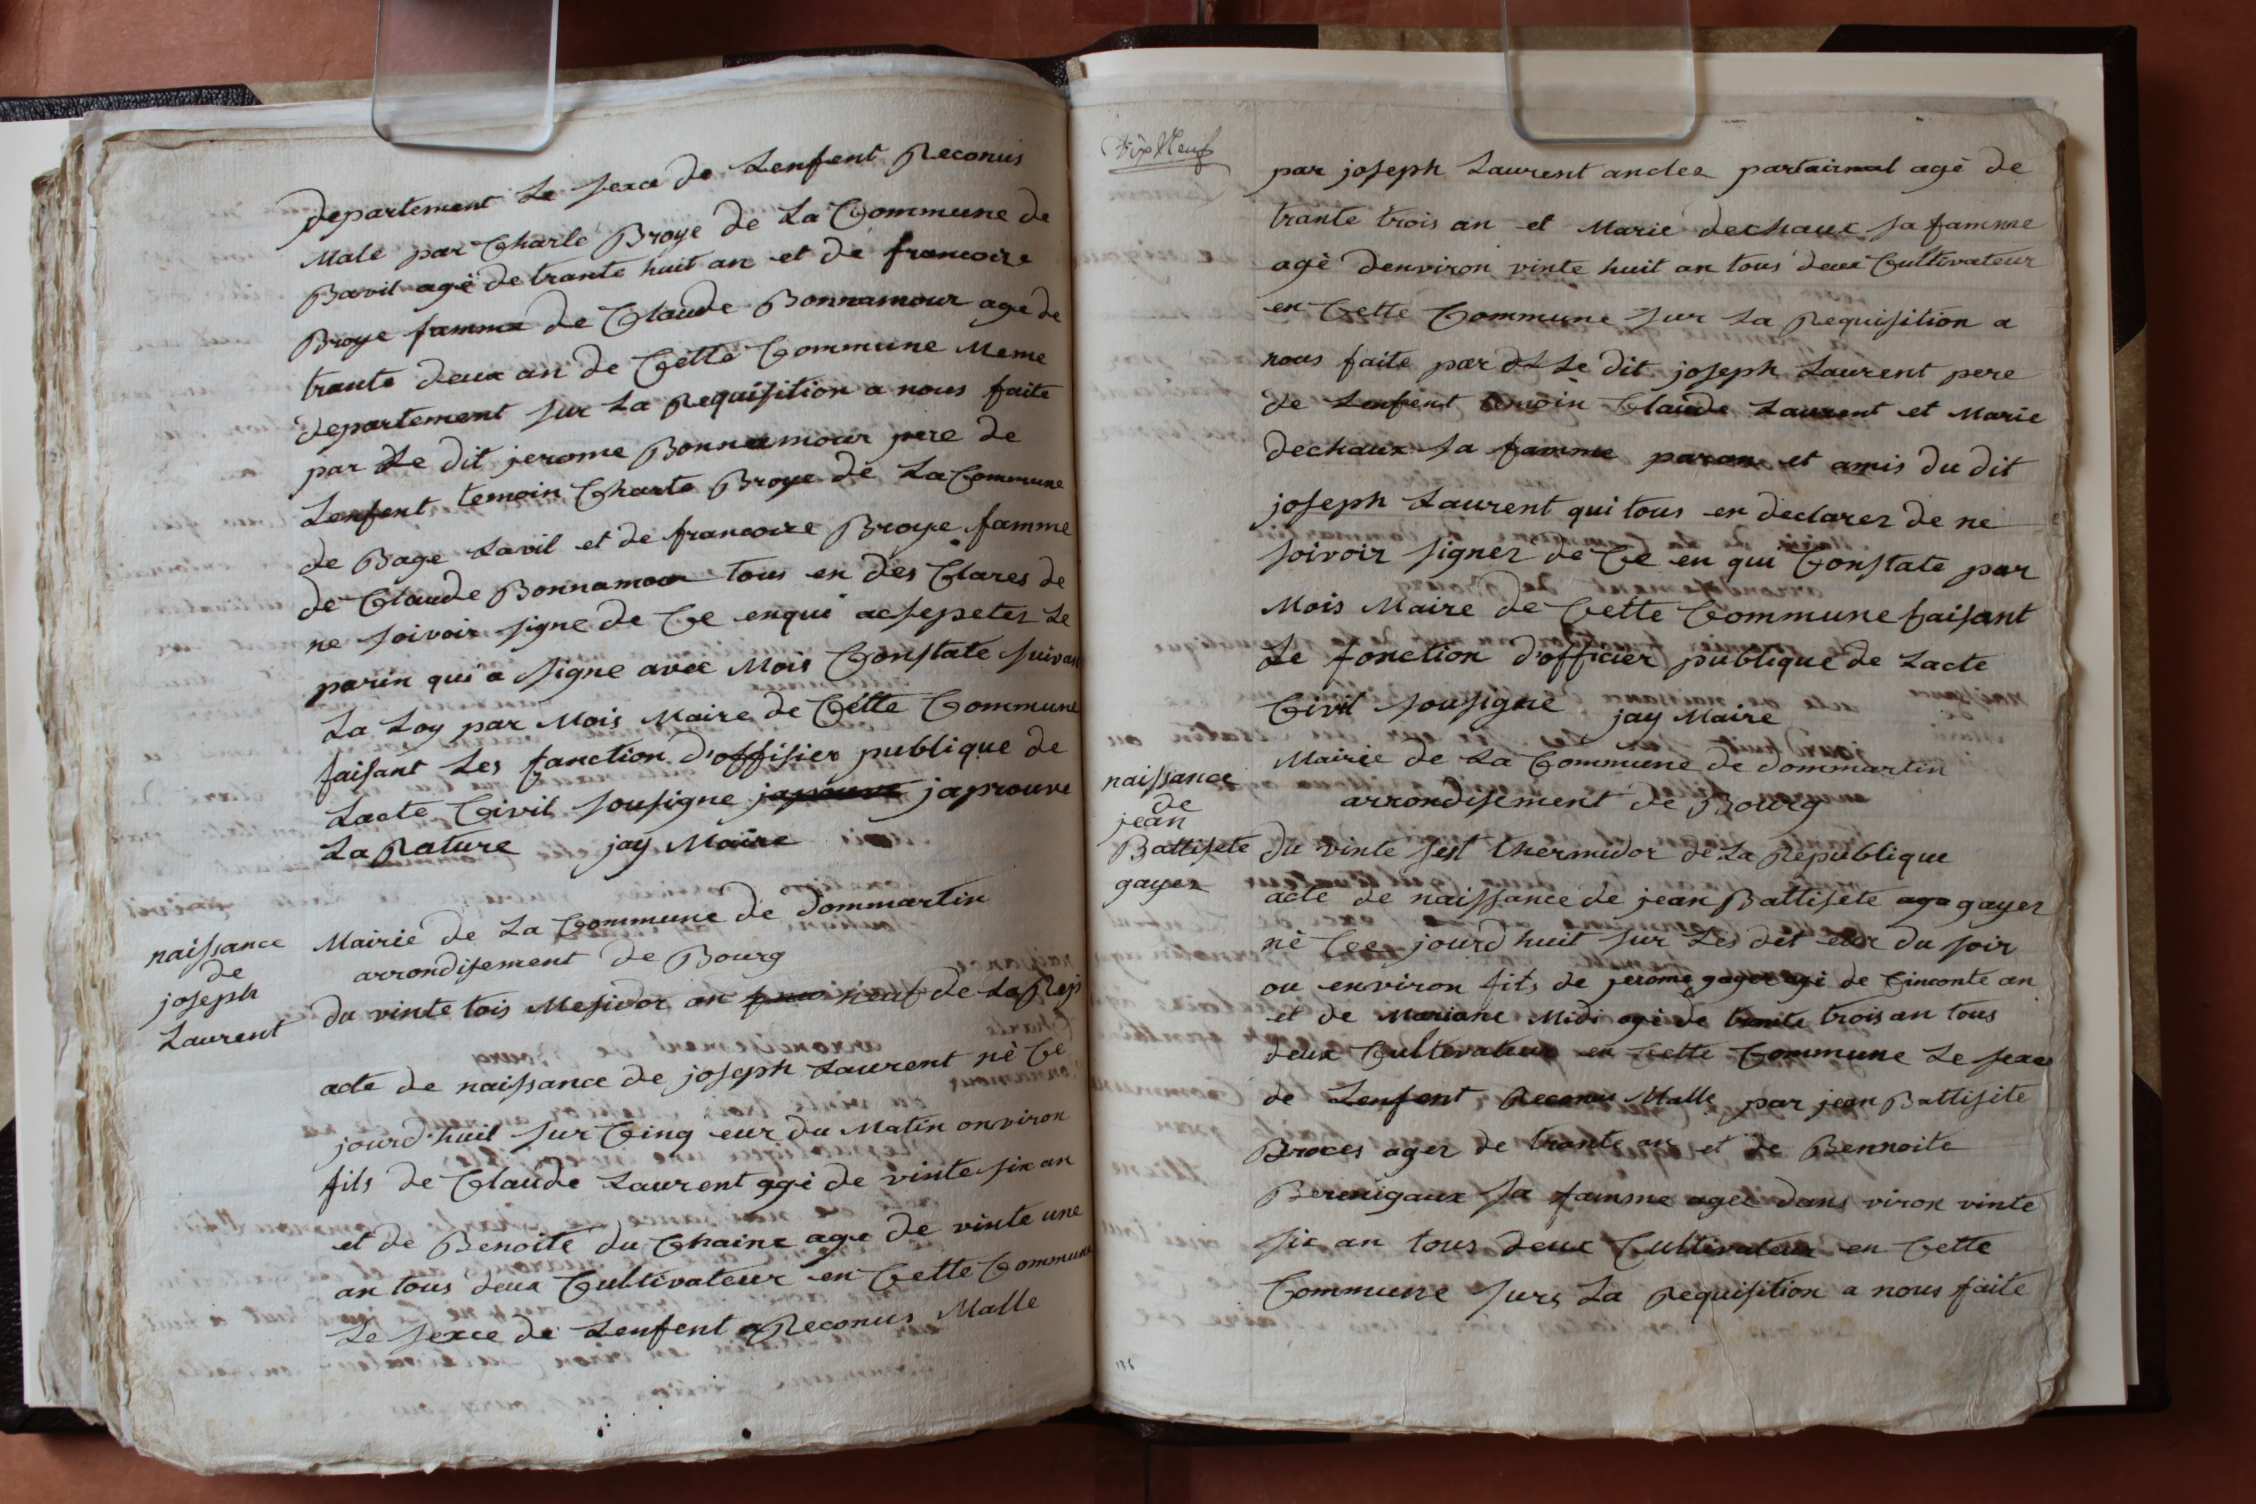 departement Le sexce de Lenfent Reconus
Male par Charle Broye de La Commune de
Bavil agé de trante huit an et de francoize
Broye famme de Claude Bonnamour age de
trante deux an de Cette Commune Meme
departement sur La Requisition a nous faite
par Le dit jerome Bonnamour pere de
Lenfent temoin Charle Broye de La Commune
de Bage Lavil et de francoize Broye famme
de Claude Bonnamour tous en des Clares de
ne soivoir signe de Ce enqui acsepeter Le
parin qui a signe avec Mois Constate suivant
La Loy par Mois Maire de Cette Commune
faisant Les fonction d'offisier publique de
Lacte Civil sousigne japrouve japrouve
La Rature jay Maire
naissance
de
joseph
Laurent
Mairie de La Commune de dommartin
arrondisement de Bourg
du vinte tois Mesidor an neuf de La Rep
acte de naissance de joseph Laurent nè Ce
jourd'huit sur Cinq eur du Matin onviron
fils de Claude Laurent agé de vinte six an
et de Benoite du Chaine age de vinte une
an tous deux Cultivateur en Cette Commune
Le sexce de Lenfent Reconus Malle
par joseph Laurent ancles agè de
trante trois an et Marie dechaux sa famme
agè denviron vinte huit an tous deux Cultivateur
en Cette Commune sur La Requisition a
nous faite par Le dit joseph Laurent pere
de Lenfent temoin Claude Laurent et Marie
dechaux sa famme paran et amis du dit
joseph Laurent qui tous en declarez de ne
soivoir signer de Ce en qui Constate par
Mois Maire de Cette Commune faisant
Le fonction d'officier publique de Lacte
Civil sousigne jay Maire
naissance
de
jean
Battisete
gayer
Mairie de La Commune de dommartin
arrondisement de Bourg
du vinte sest thermidor de La Republique
acte de naissance de jean Battisete gayer
nè Ce jourd huit sur Les dit eur du soir
ou environ fils de jerome gayer agé de Cinconte an
et de Mariane Midi agè de trante trois an tous
deux Cultivateur en Cette Commune Le sexe
de Lenfent Reconus Malle par jean Battisite
Broces ager de trante an et de Bennoite
Berenigaux sa famme agee dans viron vinte
six an tous deux Cultivateur en Cette
Commune sur La Requisition a nous faite